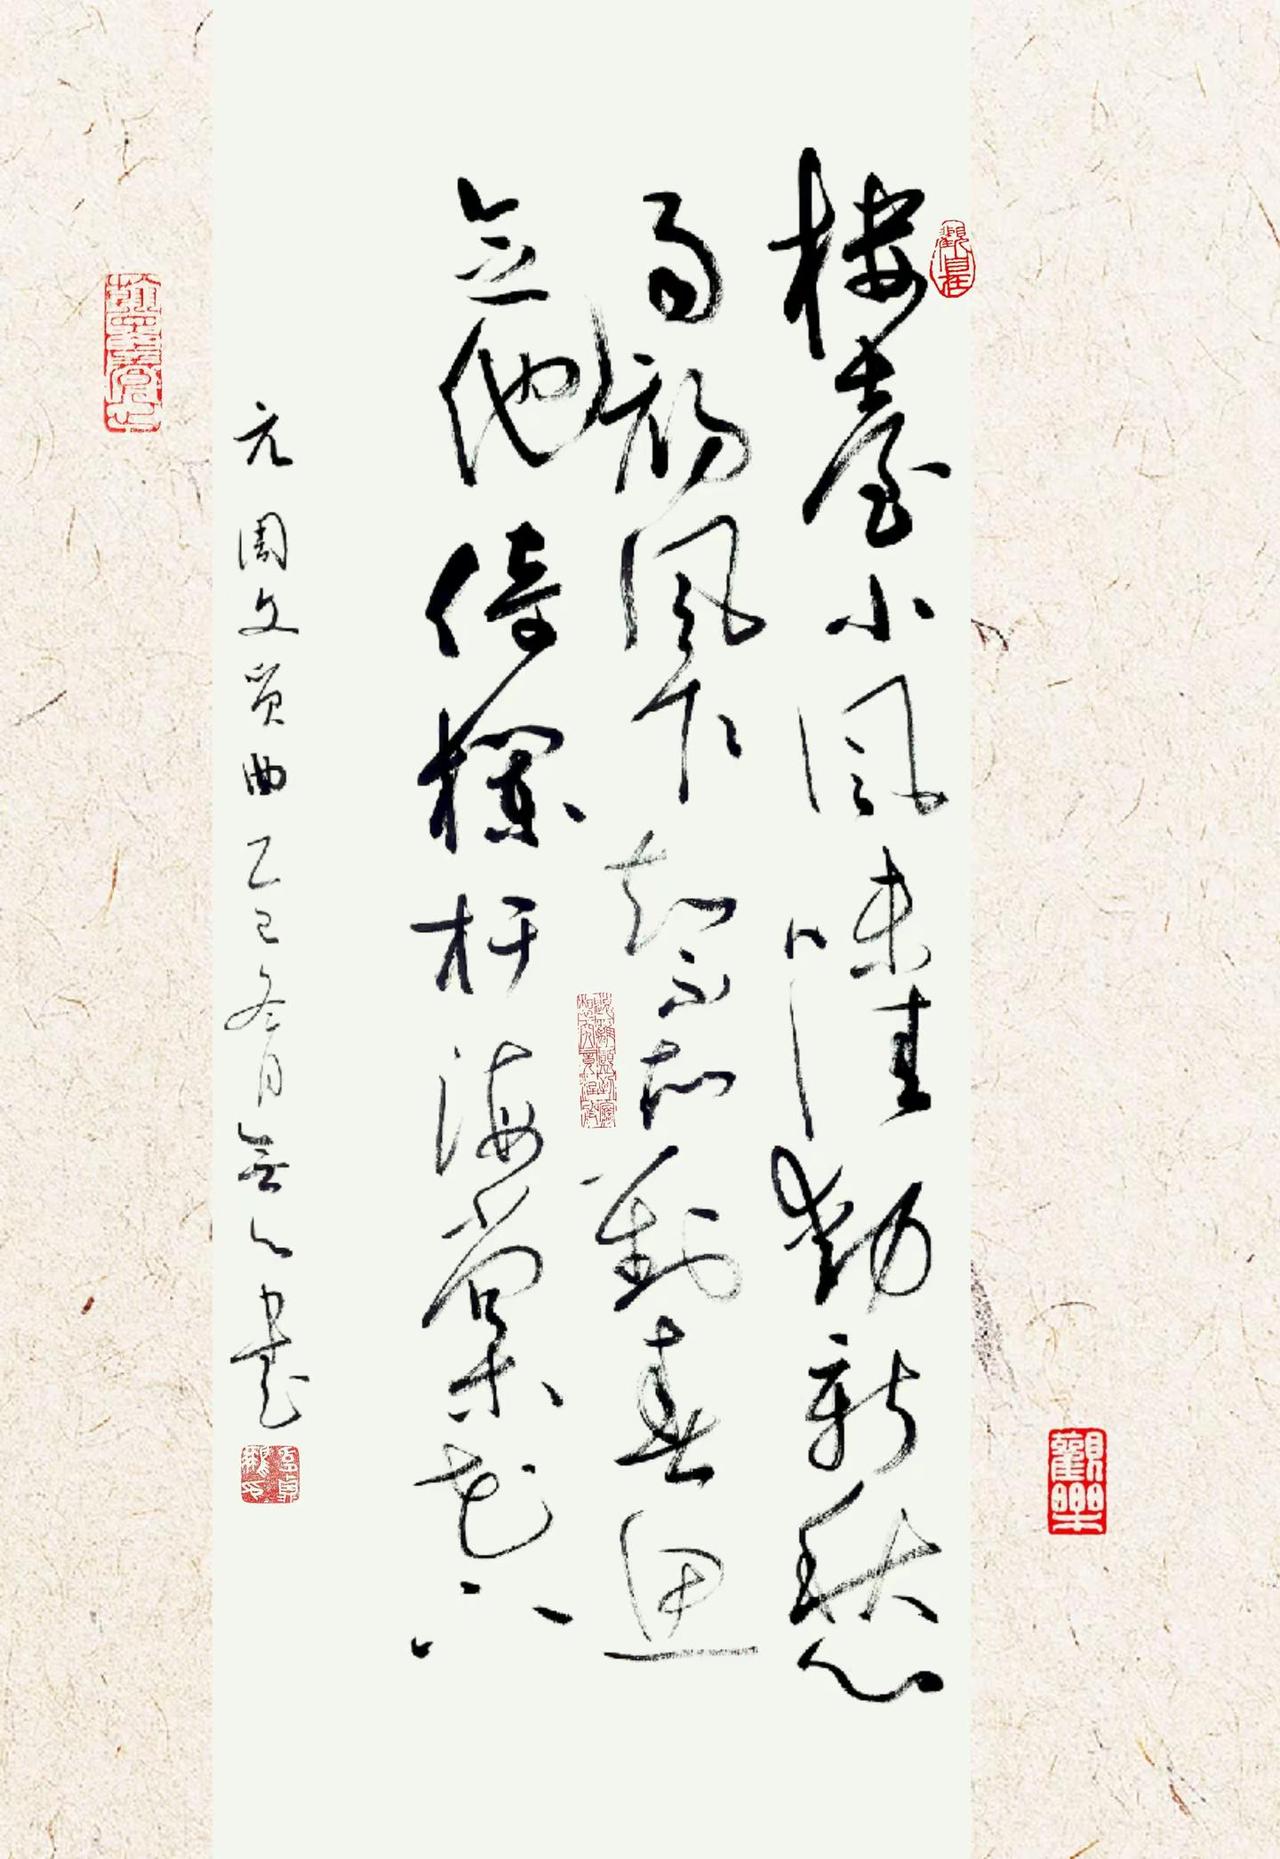 觀自在
樓臺小風味佳動新愁
雨初風乍知不知對春思
念他倚欄杆海棠花下
元周文質曲乙巳冬月書
觀樂